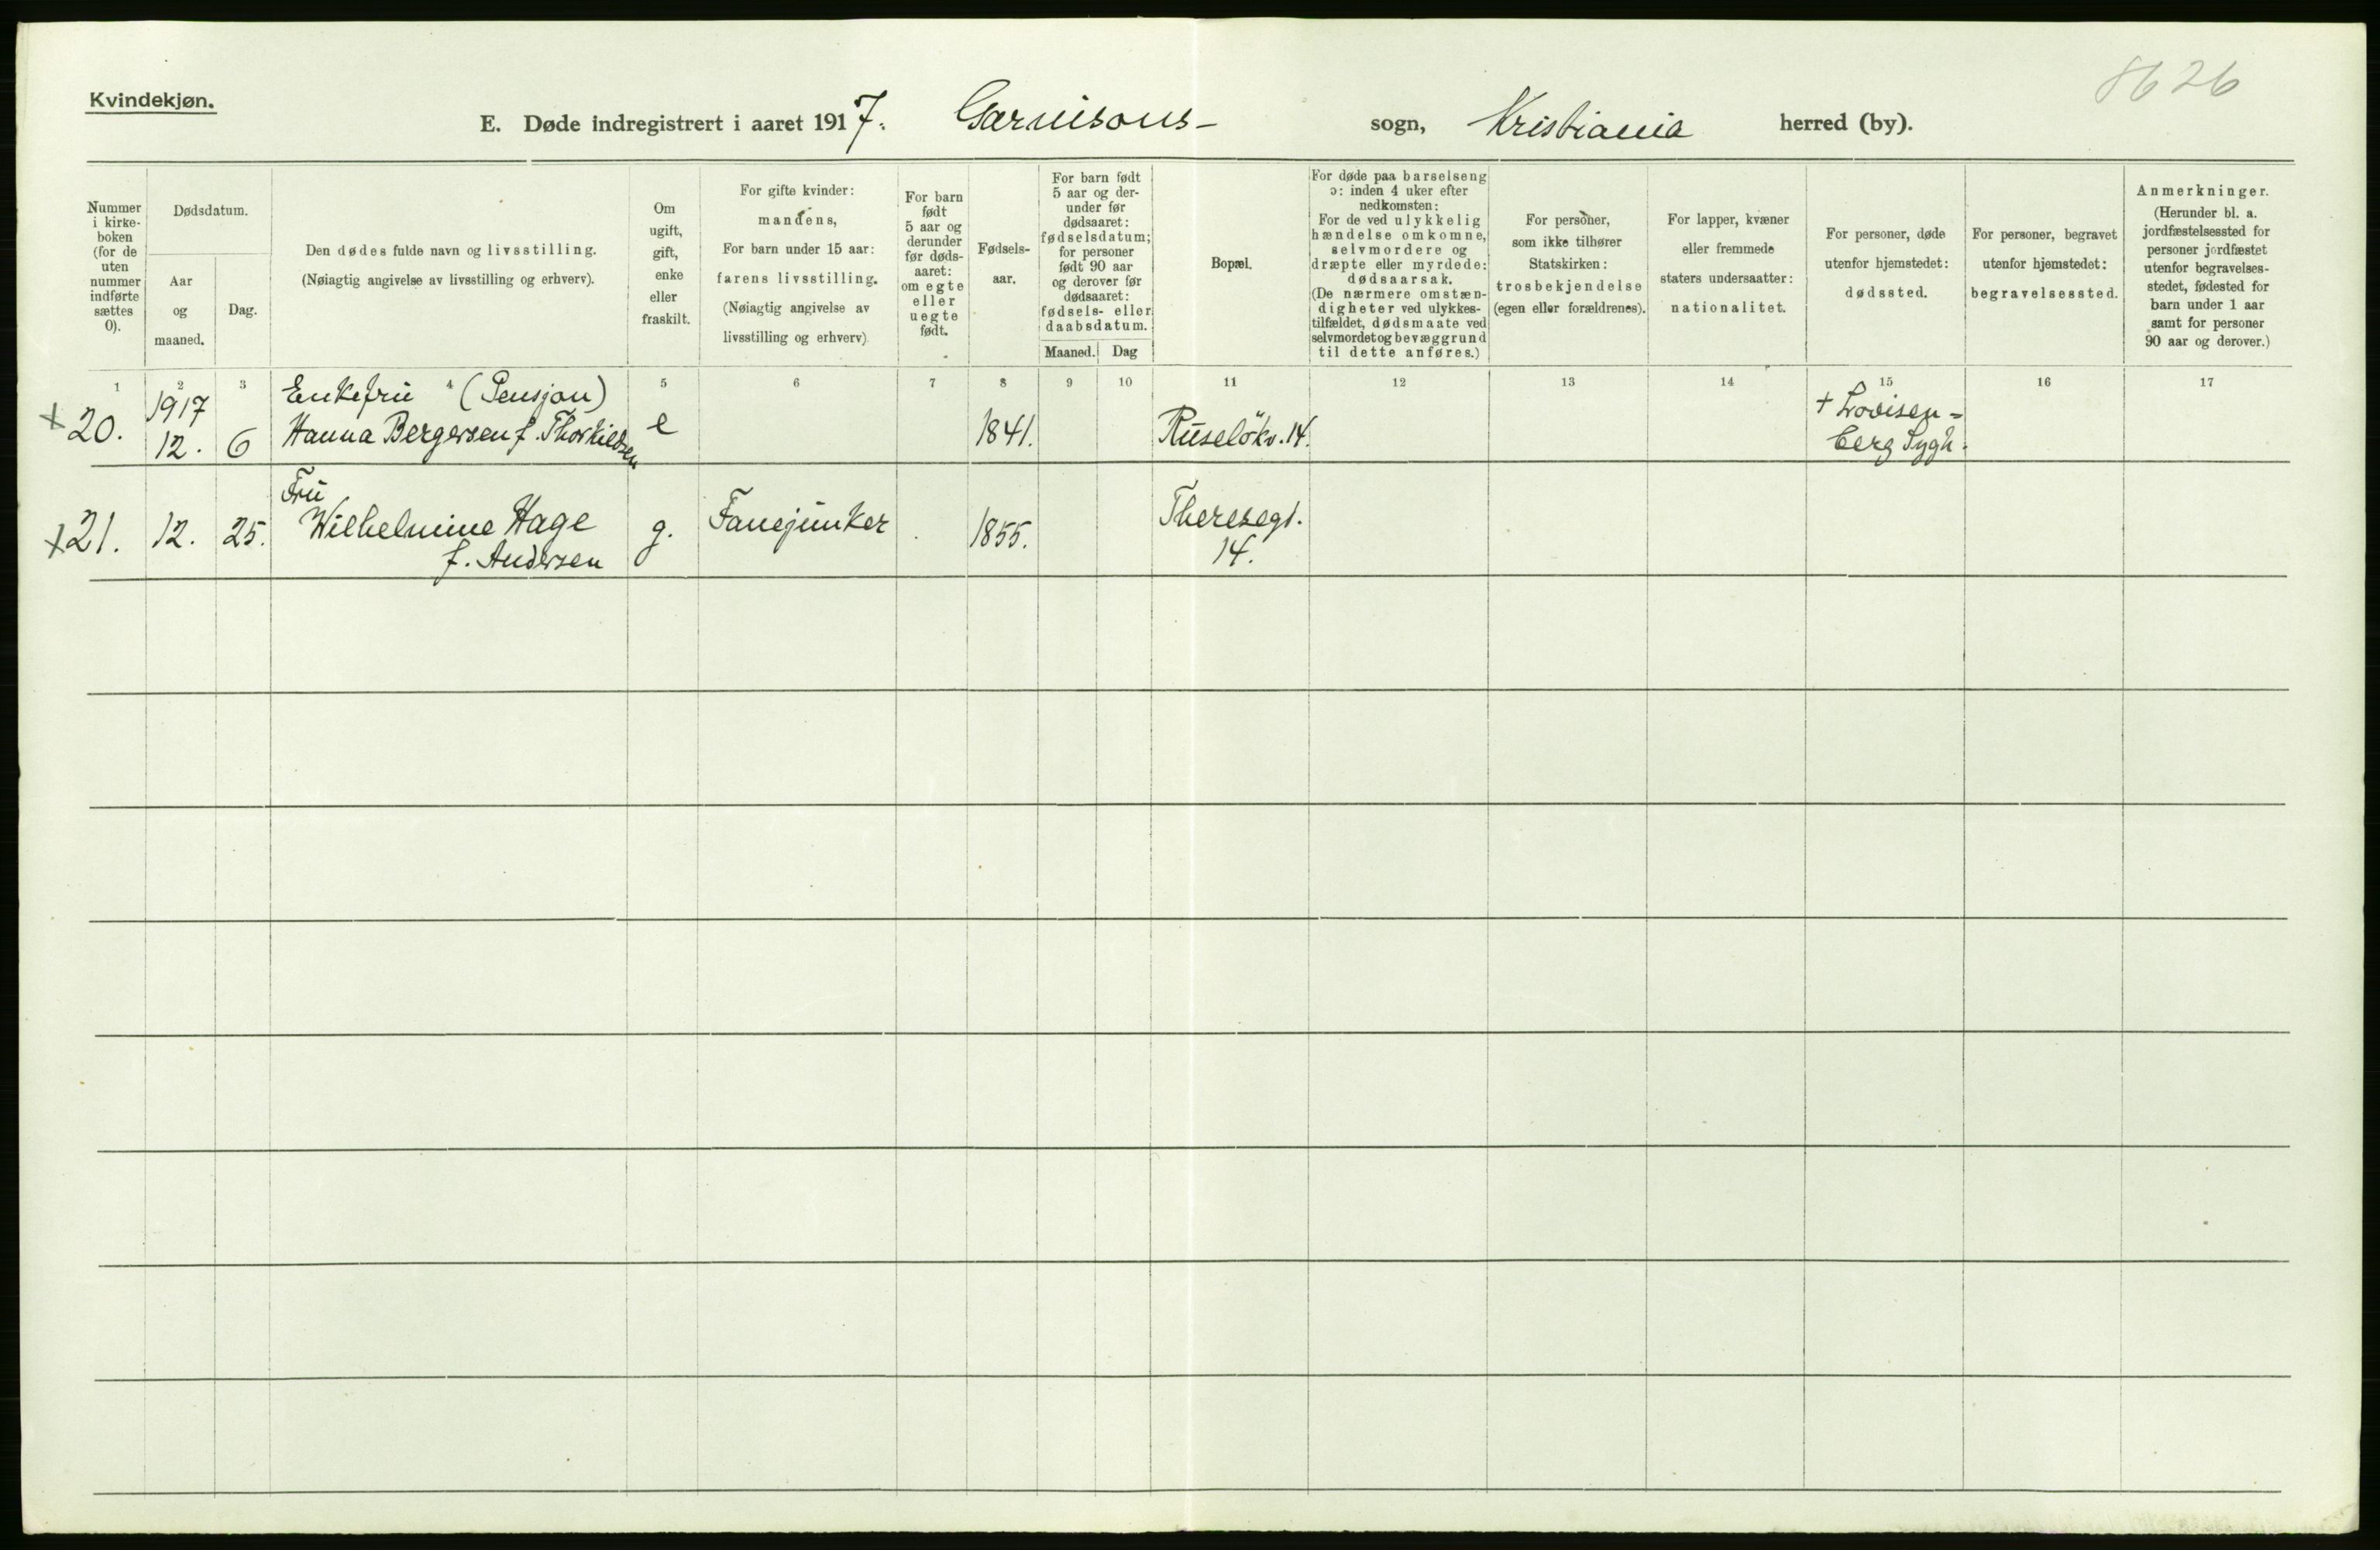 8626
Kvindekjøn.
E. Døde indregistrert i aaret 1917. Garnisons- sogn, Kristiania herred (by).
Nummer
i kirke-
boken
(for de
uten
nummer
indførte
sættes
0).
Dødsdatum.
Aar
og
maaned.
Dag.
Den dødes fulde navn og livsstilling.
(Nøiagtig angivelse av livsstilling og erhverv).
Om
ugift,
gift,
enke
eller
fraskilt.
For gifte kvinder:
mandens,
For barn under 15 aar:
farens livsstilling.
(Nøiagtig angivelse av
livsstilling og erhverv)
For barn
født
5 aar og
derunder
før døds-
aaret:
om egte
eller
uegte
født.
Fødsels-
aar.
For barn født
5 aar og der-
under før
dødsaaret:
fødselsdatum;
for personer
født 90 aar
og derover før
dødsaaret:
fødsels- eller
daabsdatum.
Maaned. Dag
Bopæl.
For døde paa barselseng
ɔ: inden 4 uker efter
nedkomsten:
For de ved ulykkelig
hændelse omkomne,
selvmordere og
dræpte eller myrdede:
dødsaarsak.
(De nærmere omstæn-
digheter ved ulykkes-
tilfældet, dødsmaate ved
selvmordet og bevæggrund
til dette anføres.)
For personer,
som ikke tilhører
Statskirken:
trosbekjendelse
(egen eller forældrenes).
For lapper, kvæner
eller fremmede
staters undersaatter:
nationalitet.
For personer, døde
utenfor hjemstedet:
dødssted.
For personer, begravet
utenfor hjemstedet:
begravelsessted.
Anmerkninger.
(Herunder bl. a.
jordfæstelsessted for
personer jordfæstet
utenfor begravelses-
stedet, fødested for
barn under 1 aar
samt for personer
90 aar og derover.)
1 2 3 4 5 6 7 8 9 10 11 12 13 14 15 16 17
1917 Enkefrü (Pensjon) + Lovisen-
x 20. 12. 6 Hanna Bergersen f. Thorkildsen e 1841. Rüselökv. 14. berg Sygh.
Frü
x 21. 12. 25. Wilhelmine Hage g. Fanejünker 1855. Theresegt.
f. Andersen 14.